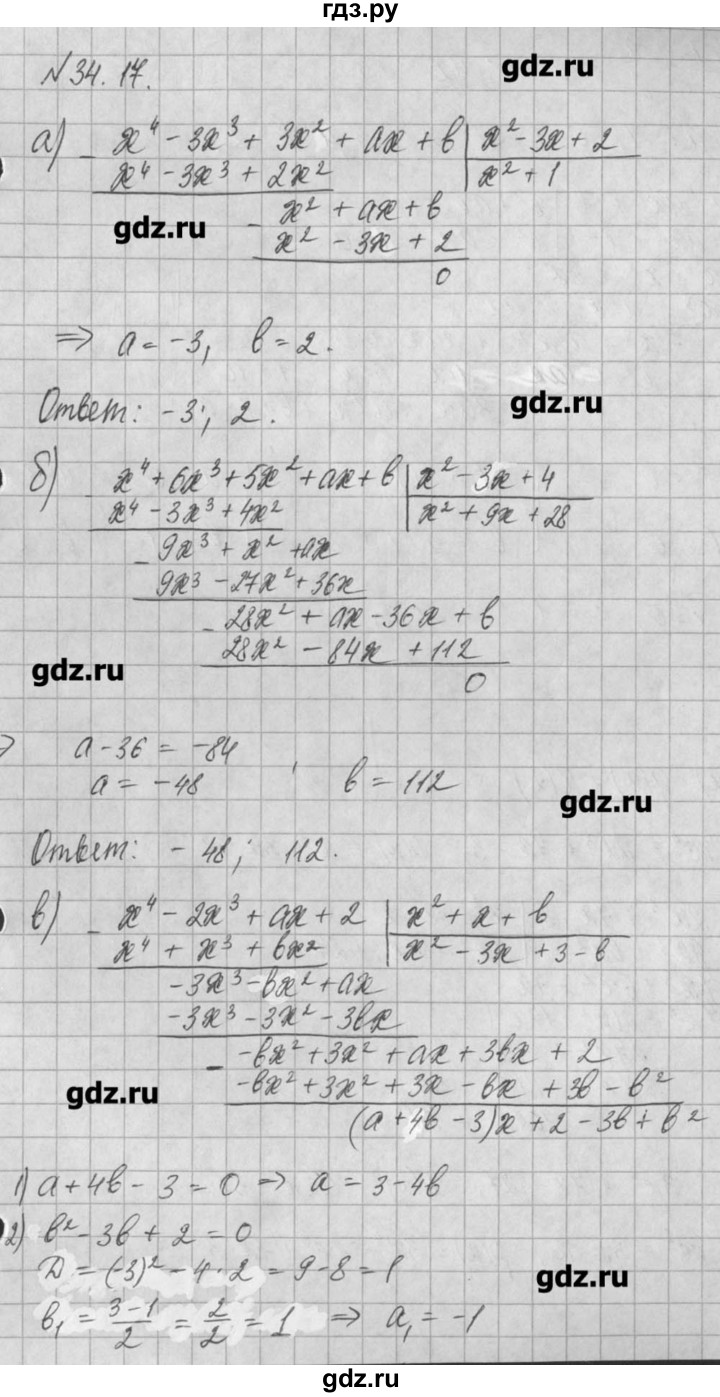 гдз.ру
№34.17.
gdz.ru
а) x⁴ - 3x³ + 3x² + ax + b | x² - 3x + 2
- x⁴ - 3x³ + 2x² | x² + 1
gdz.ru
x² + ax + b
- x² - 3x + 2
0
=> a = -3, b = 2.
Ответ: -3; 2.
gdz.ru
б) x⁴ + 6x³ + 5x² + ax + b | x² - 3x + 4
- x⁴ - 3x³ + 4x² | x² + 9x + 28
9x³ + x² + ax
- 9x³ - 27x² + 36x
28x² + ax - 36x + b
- 28x² - 84x + 112
gdz.ru
0
a - 36 = -84
a = -48 ; b = 112
gdz.ru
Ответ: -48; 112.
в) x⁴ - 2x³ + ax + 2 | x² + x + b
- x⁴ + x³ + bx² | x² - 3x + 3 - b
-3x³ - bx² + ax
-3x³ - 3x² - 3bx
-bx² + 3x² + ax + 3bx + 2
- -bx² + 3x² + 3x - bx + 3b - b²
gdz.ru
(a + 4b - 3)x + 2 - 3b + b²
1) a + 4b - 3 = 0 => a = 3 - 4b
2) b² - 3b + 2 = 0
D = (-3)² - 4·2 = 9 - 8 = 1
gdz.ru
b₁ = (3-1)/2 = 2/2 = 1 => a₁ = -1
гдз.ру